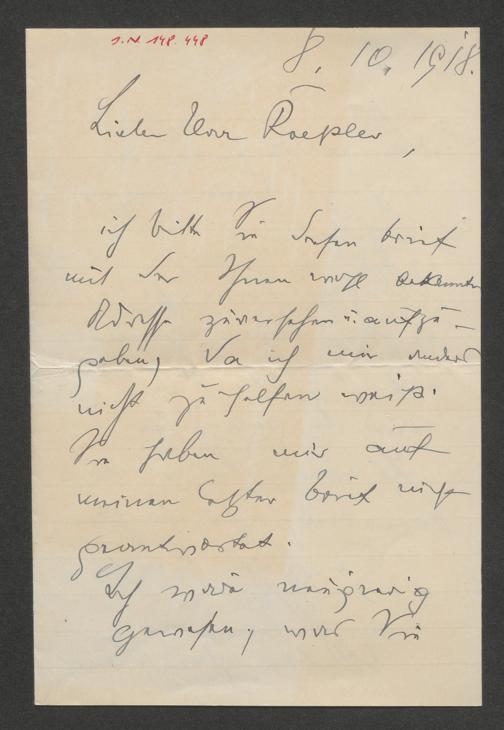 I.N. 148.448
8. 10. 1918.
Lieber Herr Roeßler,
ich bitte Sie diesen brief
mit der Ihnen wohl bekannten
Adresse zu versehen u. aufzu-
geben, da ich mir anders
nicht zu helfen weiß.
Sie haben mir auf
meinen letzten brief nicht
geantwortet.
Ich wäre neugierig
gewesen, was Sie